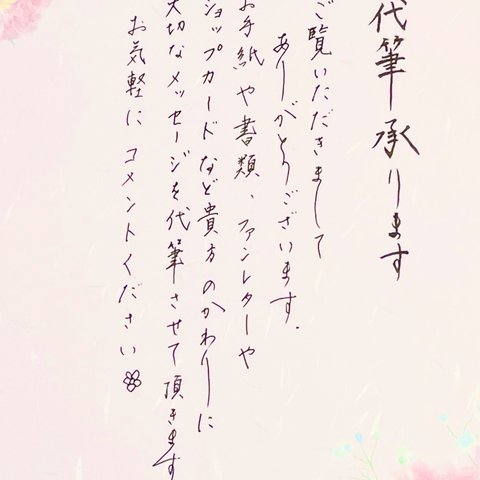 代筆承ります
ご覧いただきまして
ありがとうございます.
お手紙や書類、ファンレターや
ショップカードなど貴方のかわりに
大切なメッセージを代筆させて頂きます
お気軽にコメントください